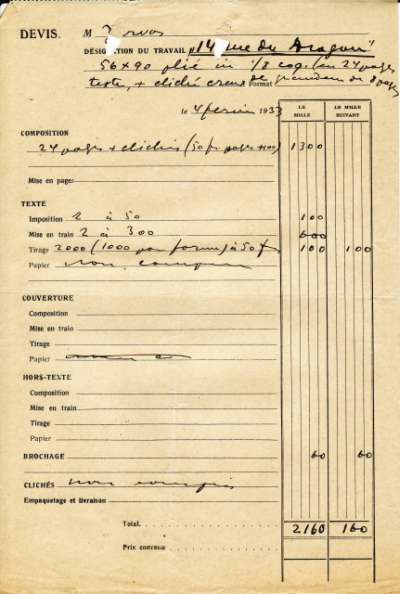 DEVIS. M Zervos
DÉSIGNATION DU TRAVAIL "14 rue du Dragon"
56 x 90 plié in 1/8 (en 24 pages
texte, + cliché de grandeur de 8 pages
Format
le 4 février 1933
LE MILLE
LE MILLE SUIVANT
COMPOSITION
24 pages + clichés (50 fr. pages 1300
Mise en pages
TEXTE
Imposition 2 à 50 100
Mise en train 2 à 300 600
Tirage 2000 (1000 par forme) à 50 f 100 100
Papier non compris
COUVERTURE
Composition
Mise en train
Tirage
Papier
HORS-TEXTE
Composition
Mise en train
Tirage
Papier
BROCHAGE 60 60
CLICHÉS non compris
Empaquetage et livraison
Total. 2160 160
Prix convenu